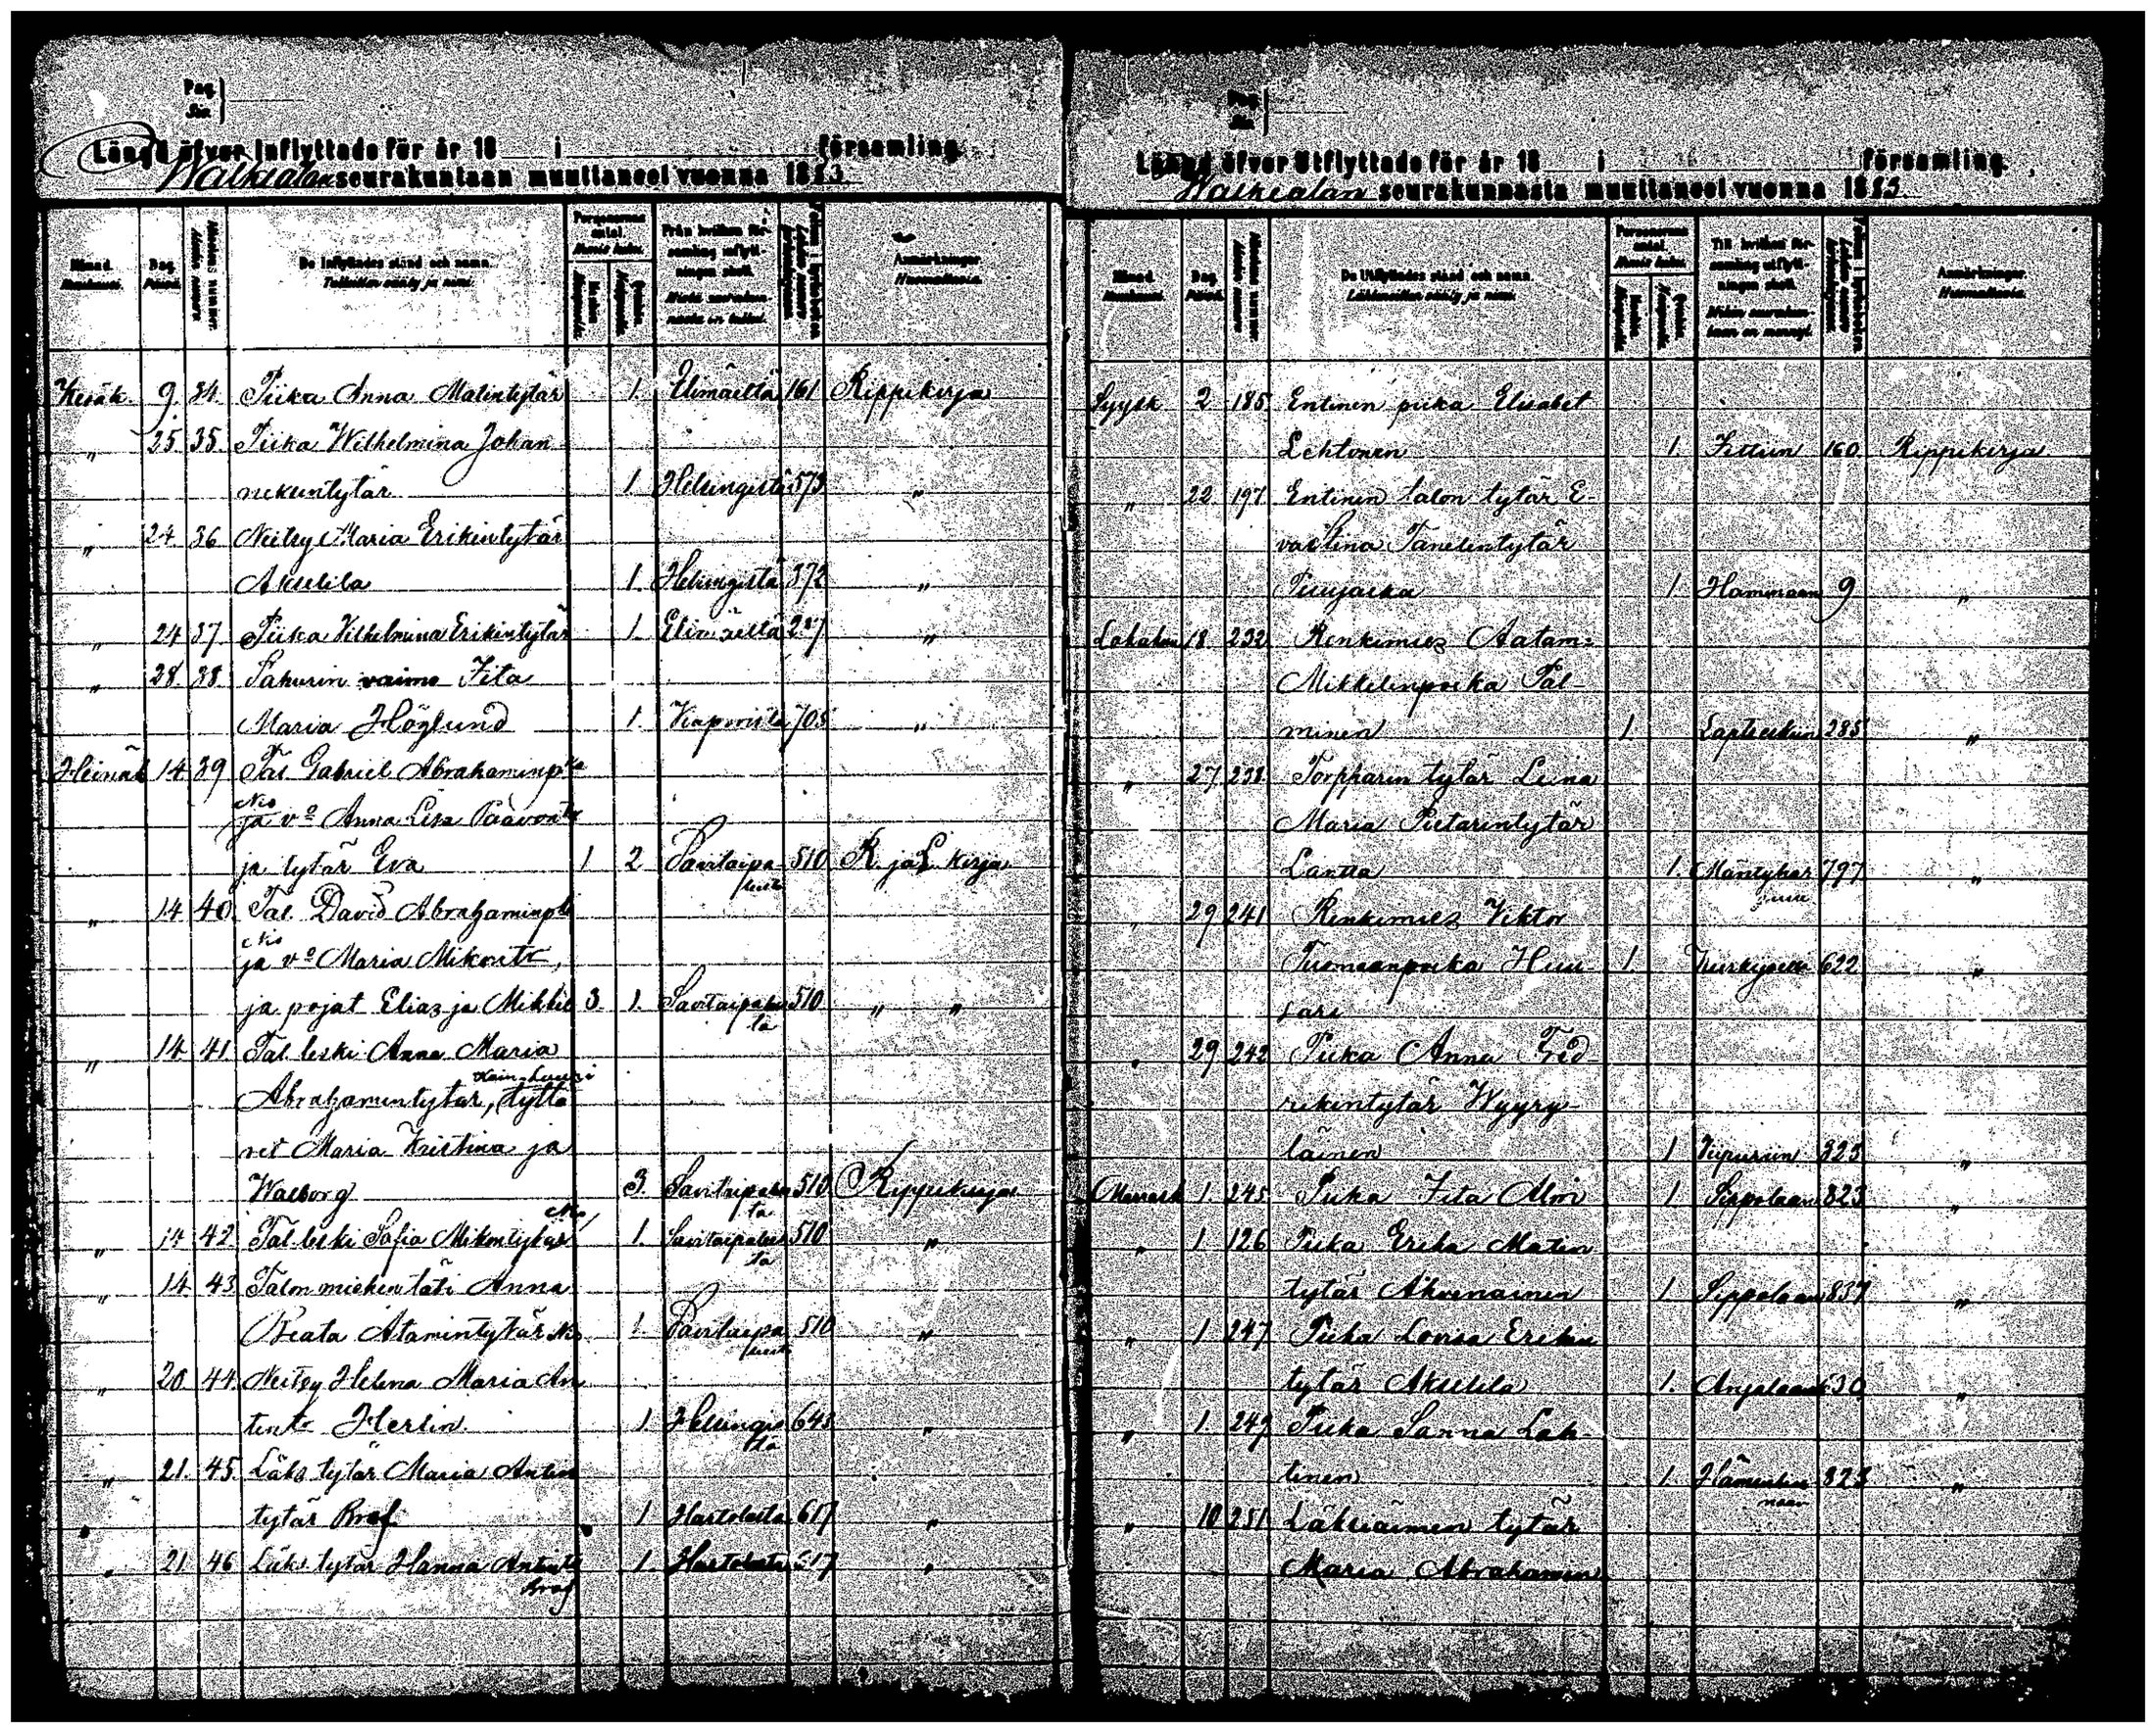 Pag.
Siv.
Längd öfver Inflyttade för år 18 i församling.
Walkealan seurakuntaan muuttaneet vuonna 1883.
Månad. Kuukausi.
Dag. Päivä.
De Inflyttades stånd och namn.
Tulleitten sääty ja nimi.
Personernas antal.
Mankön. Miespuolta.
Qvinkön. Naispuolta.
Från hvilken församling inflyttningen skett.
Anmärkningar.
Kesäk. 9. 34. Piika Anna Matintytär 1. Elimäeltä 161 Rippikirja
„ 25. 35. Piika Wilhelmina Johan
neksentytär 1 Helsingistä 573 „
„ 24 36 Neitsy Maria Erikintytär
Akselila 1. Helsingistä 372 „
„ 24 37. Piika Vilhelmina Erikintytär 1. Elimäeltä 287 „
„ 28. 38. Sahurin vaimo Fita
Maria Höglund 1. Viaporista 705 „
Heinäk 14 39 Tal Gabriel Abrahaminp
ja v:o Anna Lisa Paavontr
ja tytär Eva 1 2 Savitaipa 510 R. ja L kirja
leesta
„ 14 40. Tal. David Abrahaminp
ja v:o Maria Mikontr,
ja pojat Elias ja Mikkel 3. 1. Savitaipalees 510 „ „
ta
„ 14 41 Tal. leski Anna Maria
Abrahamintytär, tyttä
ret Maria Kristina ja
Walborg 3. Savitaipalees 510 Rippikirja
ta
„ 14 42 Tal. leski Sofia Mikontytär 1. Savitaipalees 510 „
ta
„ 14 43 Talon miehen täti Anna
Beata Atamintytär 1 Savitaipa 510 „
leesta
„ 20. 44. Neitsy Helena Maria An
tintr Herlin. 1. Helsingis 645 „
tä
„ 21. 45. Läks tytär Maria Antin
tytär 1 Hartolasta 617 „
„ 21. 46 Läks. tytär Hanna 1. Hartolasta 617 „
Pag.
Siv.
Längd öfver Utflyttade för år 18 i församling.
Walkealan seurakunnasta muuttaneet vuonna 1883.
Månad. Kuukausi.
Dag. Päivä.
De Utflyttades stånd och namn.
Lähteneitten sääty ja nimi.
Personernas antal.
Till hvilken församling utflyttningen skett.
Anmärkningar.
Syysk 2 185 Entinen piika Elisabet
Lehtonen 1. Iittiin 160 Rippikirja
„ 22 197 Entinen talon tytär E-
va Stina Tanelintytär
1 Haminaan 9 „
Lokakuu 18. 232 Renkimies Aatam=
Mikkelinpoika Tal-
minen 1 285 „
„ 27. 238. Torpparin tytär Lena
Maria Pietarintytär
Lantta 1. Mäntyhar 797 „
juun
„ 29 241 Renkimies Viktor
Tuomaanpoika Huu- 1 622 „
sari
„ 29 242 Piika Anna Fred-
rikintytär Wyyry-
läinen 1 Viipuriin 325 „
Marrask 1. 245 Piika Fita 1 Sippolaan 823 „
„ 1 126 Piika Erika Matin
tytär Ahvenainen 1 Sippolaan 837 „
„ 1 247 Piika Lovisa Erikin
tytär Akselila 1. Anjalaan 630 „
„ 1. 249 Piika Sanna Lah-
tinen 1. Hämeenlin 323 „
naan
„ 10 251 Läksiäimen tytär
Maria Abrahamin